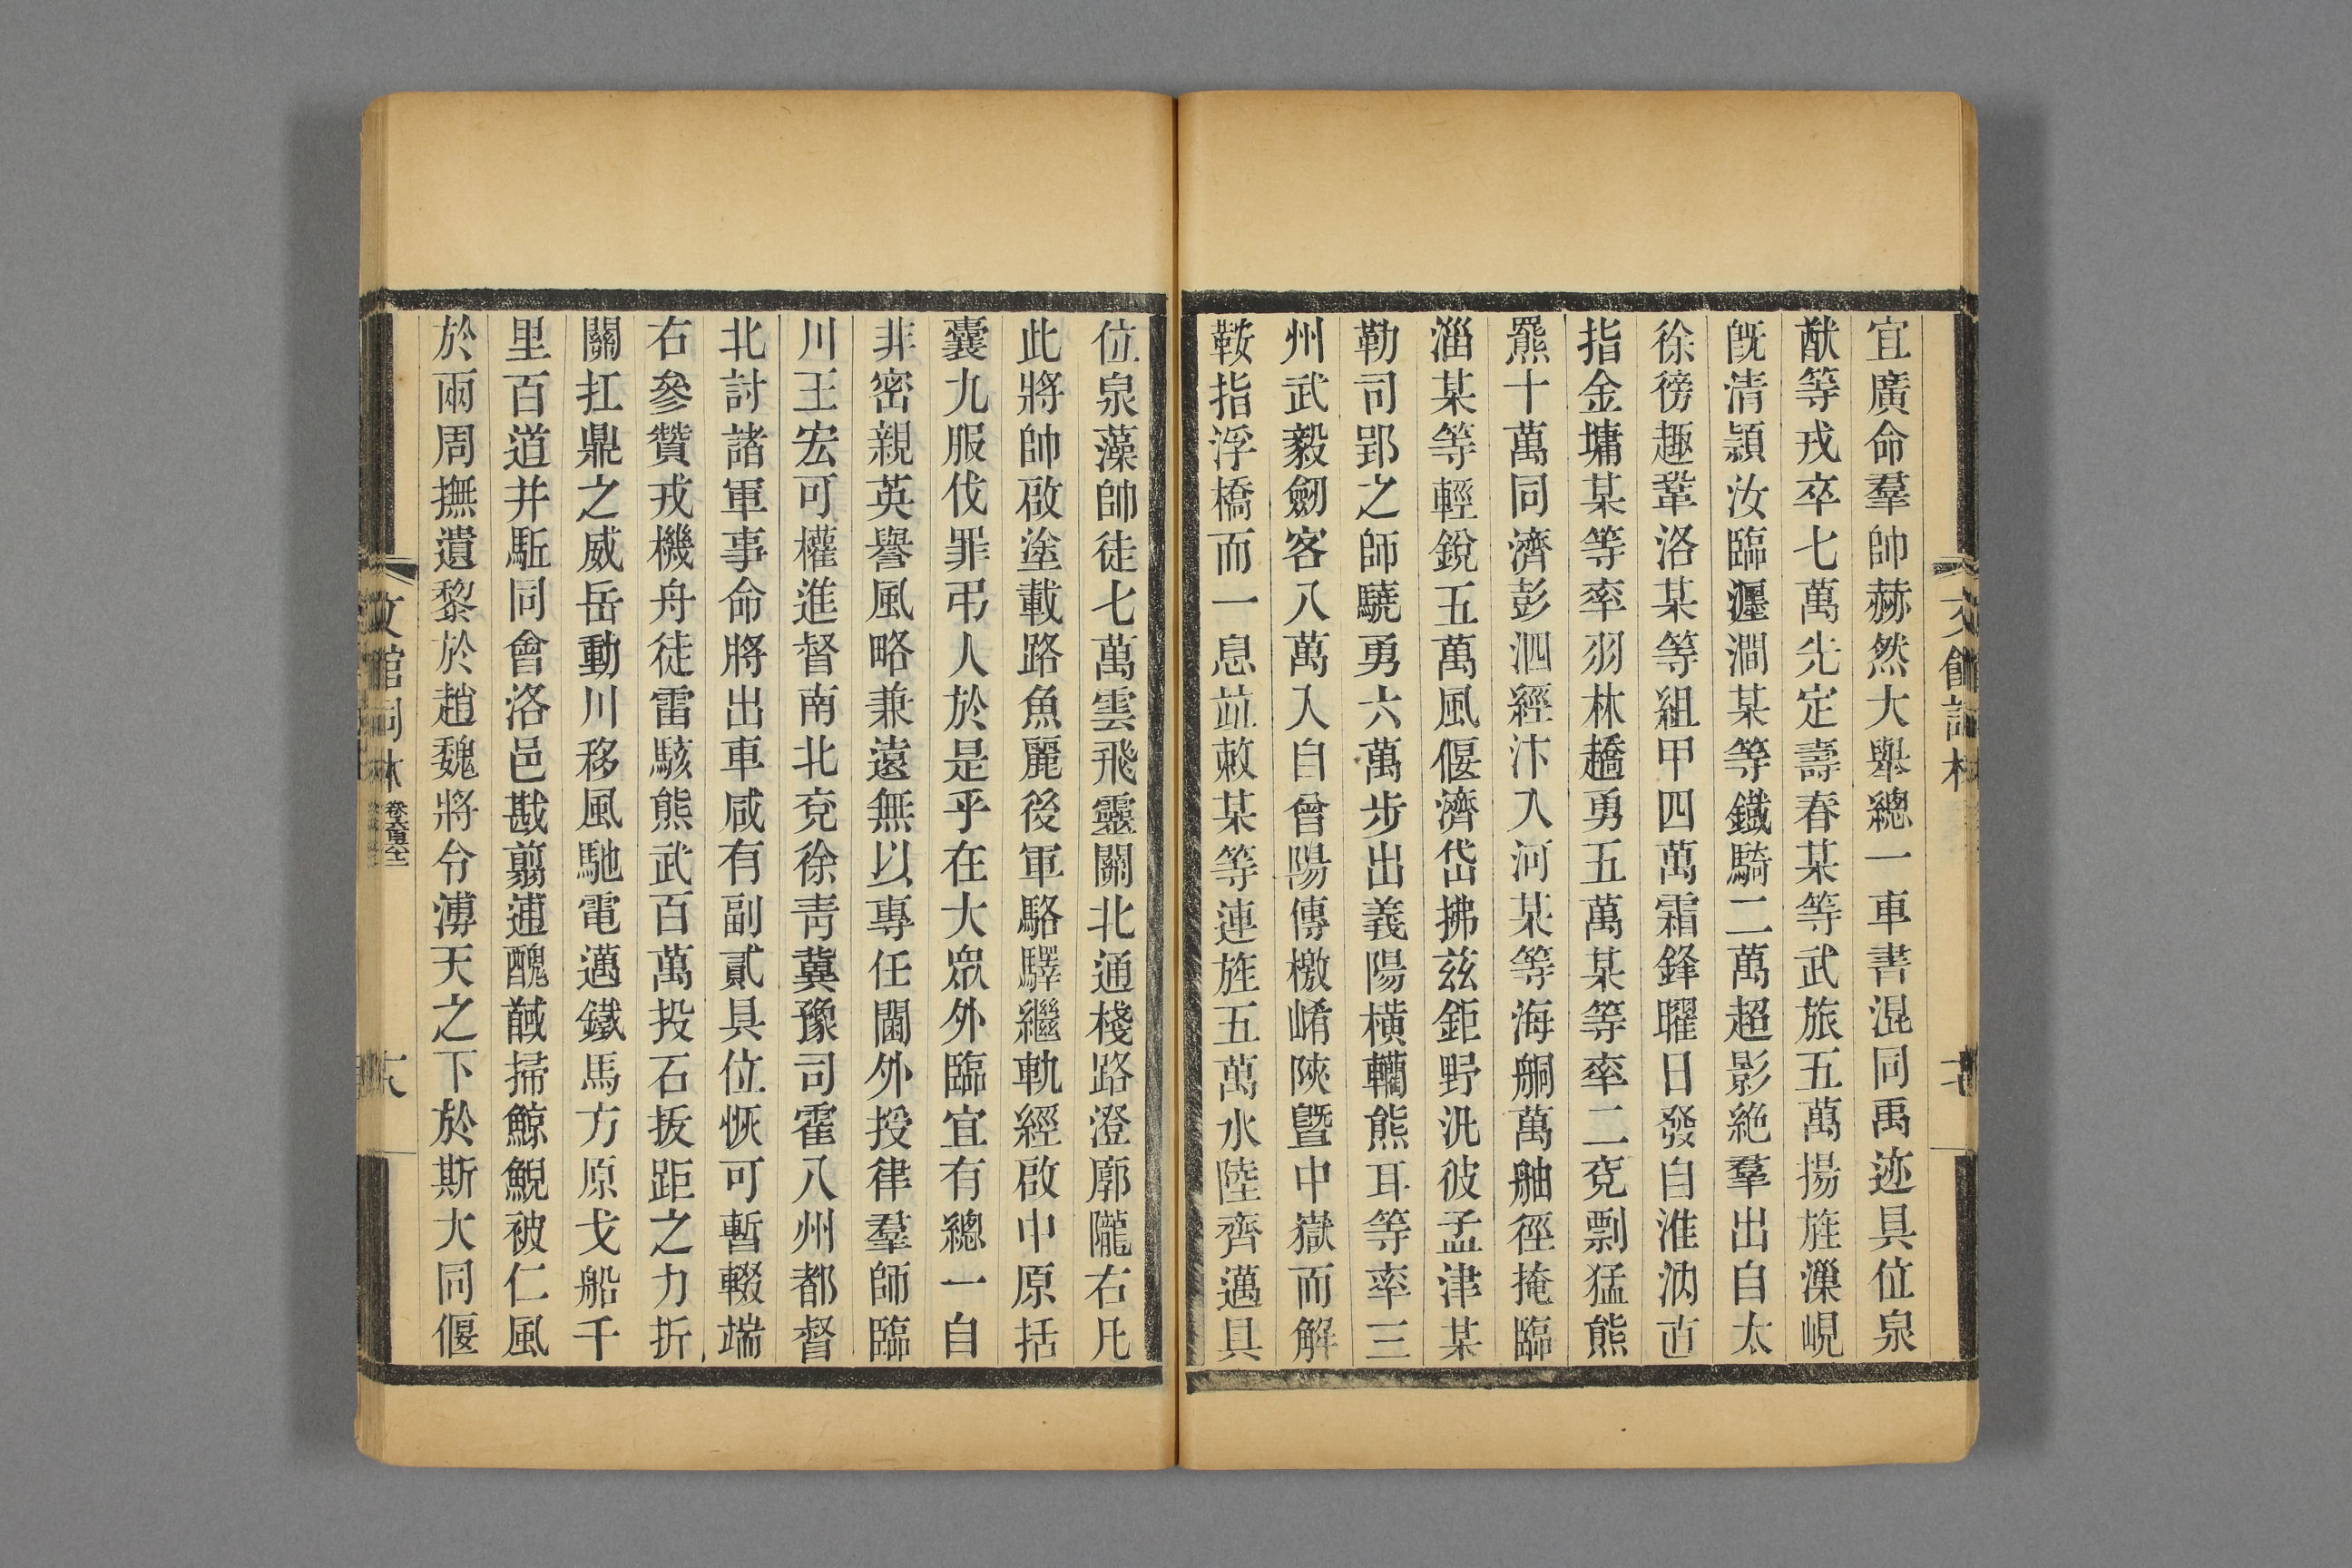 宜廣命羣帥赫然大舉總一車書混同禹迹具位泉
猷等戎卒七萬先定壽春某等武旅五萬揚旌漅峴
旣清潁汝臨瀍澗某等鐵騎二萬超影絶羣出自太
徐徬趣鞏洛某等組甲四萬霜鋒曜日發自淮汭直
指金墉某等率羽林趫勇五萬某等率二兗剽猛熊
羆十萬同濟彭泗經汴入河某等海艒萬舳徑掩臨
淄某等輕銳五萬風偃濟岱拂兹鉅野汎彼孟津某
勒司郢之師驍勇六萬步出義陽橫轥熊耳等率三
州武毅劒客八萬入自曾陽傳檄崤陜曁中嶽而解
鞍指浮橋而一息竝敕某等連旌五萬水陸齊邁具
位泉藻帥徒七萬雲飛靈關北通棧路澄廓隴右凡
此將帥啟塗載路魚麗後軍駱驛繼軌經啟中原括
囊九服伐罪弔人於是乎在大眾外臨宜有總一自
非密親英譽風略兼遠無以專任閫外授律羣師臨
川王宏可權進督南北兗徐青冀豫司霍八州都督
北討諸軍事命將出車咸有副貳具位恢可暫輟端
右參贊戎機舟徒雷駭熊武百萬投石拔距之力折
關扛鼎之威岳動川移風馳電邁鐵馬方原戈船千
里百道并駈同會洛邑戡翦逋醜馘掃鯨鯢被仁風
於兩周撫遺黎於趙魏將令溥天之下於斯大同偃
文館詞林
卷六百六十二
文館詞林